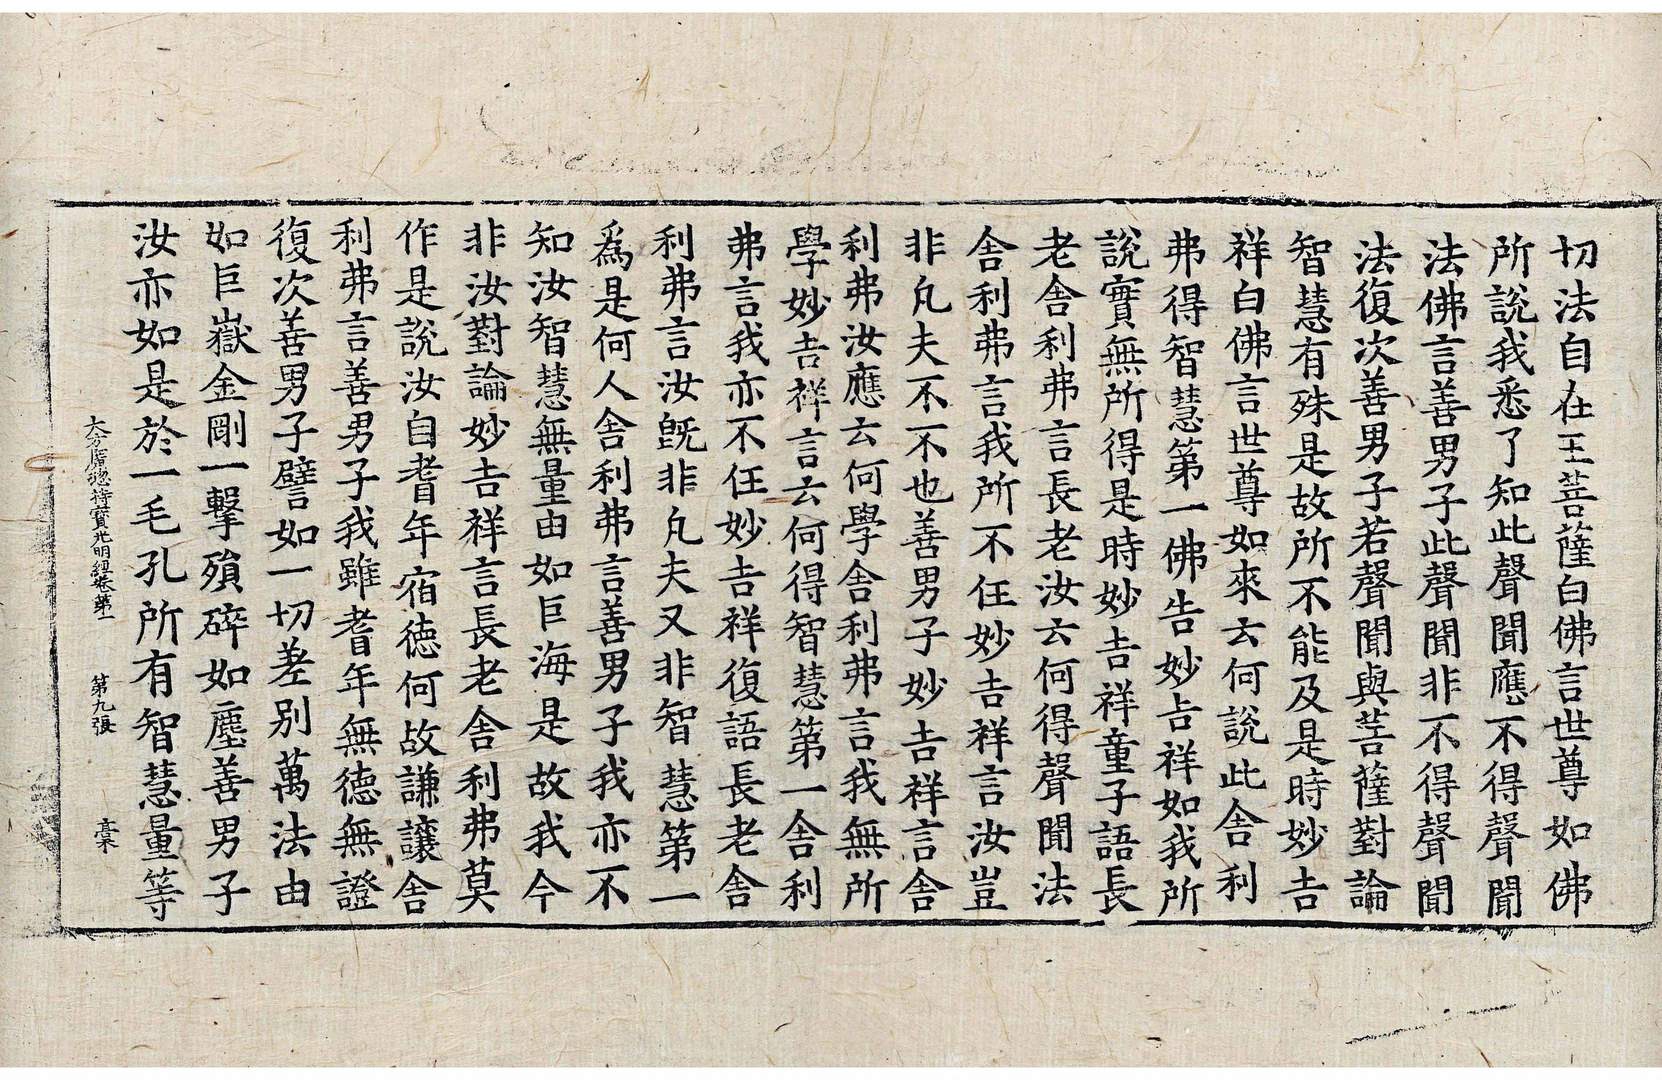 切法自在王菩薩白佛言世尊如佛
所說我悉了知此聲聞應不得聲聞
法佛言善男子此聲聞非不得聲聞
法復次善男子若聲聞與菩薩對論
智慧有殊是故所不能及是時妙吉
祥白佛言世尊如來云何說此舍利
弗得智慧第一佛告妙吉祥如我所
說實無所得是時妙吉祥童子語長
老舍利弗言長老汝云何得聲聞法
舍利弗言我所不任妙吉祥言汝豈
非凡夫不不也善男子妙吉祥言舍
利弗汝應云何學舍利弗言我無所
學妙吉祥言云何得智慧第一舍利
弗言我亦不任妙吉祥復語長老舍
利弗言汝旣非凡夫又非智慧第一
爲是何人舍利弗言善男子我亦不
知汝智慧無量由如巨海是故我今
非汝對論妙吉祥言長老舍利弗莫
作是說汝自耆年宿德何故謙讓舍
利弗言善男子我雖耆年無德無證
復次善男子譬如一切差別萬法由
如巨嶽金剛一擊殞碎如塵善男子
汝亦如是於一毛孔所有智慧量等
大方廣揔持寶光明經卷第一　第九張　槀